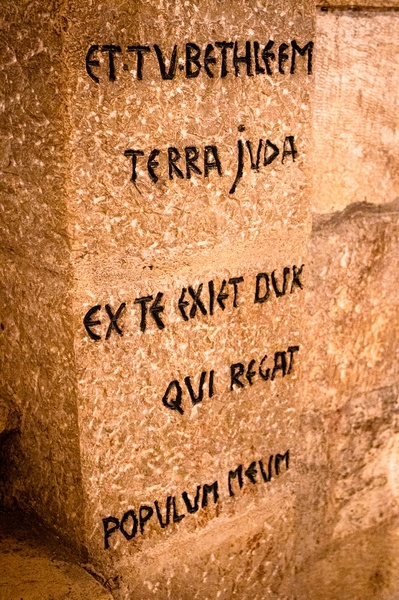 ET·TV·BETHLEEM
TERRA jUDA
EX TE EXIET DUX
QUI REGAT
POPULUM MEUM